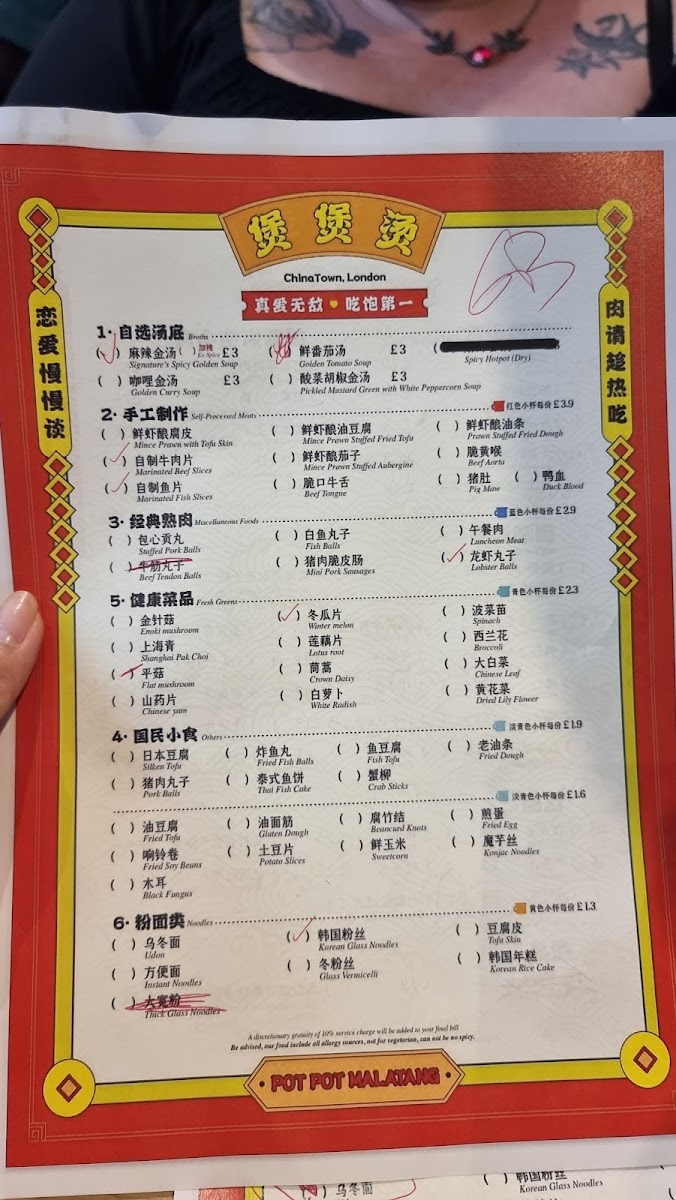 煲煲烫
ChinaTown, London
真爱无敌 吃饱第一
恋爱慢慢谈
肉请趁热吃
1· 自选汤底 Broths
( ) 麻辣金汤 ( ) 加辣 £3 ( ) 鲜番茄汤 £3 (
Signature's Spicy Golden Soup Ex-Spice Golden Tomato Soup Spicy Hotpot (Dry)
( ) 咖喱金汤 £3 ( ) 酸菜胡椒金汤 £3
Golden Curry Soup Pickled Mustard Green with White Peppercorn Soup
2· 手工制作 Self-Processed Meats 红色小杯每份 £3.9
( ) 鲜虾酿腐皮 ( ) 鲜虾酿油豆腐 ( ) 鲜虾酿油条
Mince Prawn with Tofu Skin Mince Prawn Stuffed Fried Tofu Prawn Stuffed Fried Dough
( ) 自制牛肉片 ( ) 鲜虾酿茄子 ( ) 脆黄喉
Marinated Beef Slices Mince Prawn Stuffed Aubergine Beef Aorta
( ) 自制鱼片 ( ) 脆口牛舌 ( ) 猪肚 ( ) 鸭血
Marinated Fish Slices Beef Tongue Pig Maw Duck Blood
3· 经典熟肉 Miscellaneous Foods 蓝色小杯每份 £2.9
( ) 包心贡丸 ( ) 白鱼丸子 ( ) 午餐肉
Stuffed Pork Balls Fish Balls Luncheon Meat
( ) 牛筋丸子 ( ) 猪肉脆皮肠 ( ) 龙虾丸子
Beef Tendon Balls Mini Pork Sausages Lobster Balls
5· 健康菜品 Fresh Greens 青色小杯每份 £2.3
( ) 金针菇 ( ) 冬瓜片 ( ) 菠菜苗
Enoki mushroom Winter melon Spinach
( ) 上海青 ( ) 莲藕片 ( ) 西兰花
Shanghai Pak Choi Lotus root Broccoli
( ) 平菇 ( ) 茼蒿 ( ) 大白菜
Flat mushroom Crown Daisy Chinese Leaf
( ) 山药片 ( ) 白萝卜 ( ) 黄花菜
Chinese yam White Radish Dried Lily Flower
4· 国民小食 Others 淡青色小杯每份 £1.9
( ) 日本豆腐 ( ) 炸鱼丸 ( ) 鱼豆腐 ( ) 老油条
Silken Tofu Fried Fish Balls Fish Tofu Fried Dough
( ) 猪肉丸子 ( ) 泰式鱼饼 ( ) 蟹柳
Pork Balls Thai Fish Cake Crab Sticks
淡青色小杯每份 £1.6
( ) 油豆腐 ( ) 油面筋 ( ) 腐竹结 ( ) 煎蛋
Fried Tofu Gluten Dough Beancurd Knots Fried Egg
( ) 响铃卷 ( ) 土豆片 ( ) 鲜玉米 ( ) 魔芋丝
Fried Soy Beans Potato Slices Sweetcorn Konjac Noodles
( ) 木耳
Black Fungus
6· 粉面类 Noodles 黄色小杯每份 £1.3
( ) 乌冬面 ( ) 韩国粉丝 ( ) 豆腐皮
Udon Korean Glass Noodles Tofu Skin
( ) 方便面 ( ) 冬粉丝 ( ) 韩国年糕
Instant Noodles Glass Vermicelli Korean Rice Cake
( ) 大宽粉
Thick Glass Noodles
A discretionary gratuity of 10% service charge will be added to your final bill
Be advised, our food include all allergy sources, not for vegetarian, can not be no spicy.
POT POT MALATANG
( ) 乌冬面 ( ) 韩国粉丝
Korean Glass Noodles